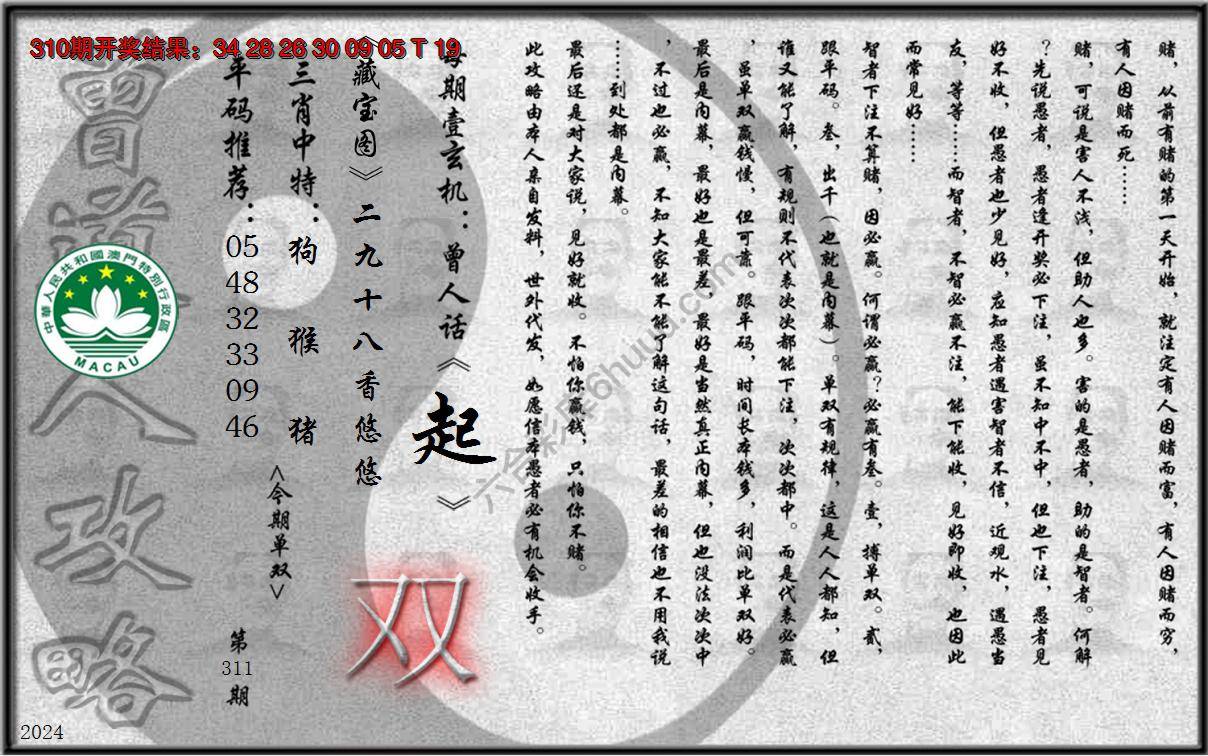 310期开奖结果：34 28 26 30 09 05 T 19
赌，从前有赌的第一天开始，就注定有人因赌而富，有人因赌而穷，
有人因赌而死……
赌，可说是害人不浅，但助人也多。害的是愚者，助的是智者。何解
？先说愚者，愚者逢开奖必下注，虽不知中不中，但也下注，愚者见
好不收，但愚者也少见好，应知愚者遇害智者不信，近观水，遇愚当
友，等等……而智者，不智必赢不注，能下能收，见好即收，也因此
而常见好……
智者下注不算赌，因必赢。何谓必赢？必赢有叁。壹，搏单双。贰，
跟平码。叁，出千（也就是内幕）。单双有规律，这是人人都知，但
谁又能了解，有规则不代表次次都能下注，次次都中。而是代表必赢
，虽单双赢钱慢，但可靠。跟平码，时间长本钱多，利润比单双好。
最后是内幕，最好也是最差，最好是当然真正内幕，但也没法次次中
，不过也必赢，不知大家能不能了解这句话，最差的相信也不用我说
……到处都是内幕。
最后还是对大家说，见好就收。不怕你赢钱，只怕你不赌。
此攻略由本人亲自发料，世外代发，如愿信本愚者必有机会收手。
每期壹玄机：曾人话《起》
《藏宝图》二九十八香悠悠
双
三肖中特：狗 猴 猪
<今期单双>
平码推荐：
05
48
32
33
09
46
第
311
期
曾道人攻略
中華人民共和國澳門特別行政區
MACAU
六合彩库6huuu.com
2024